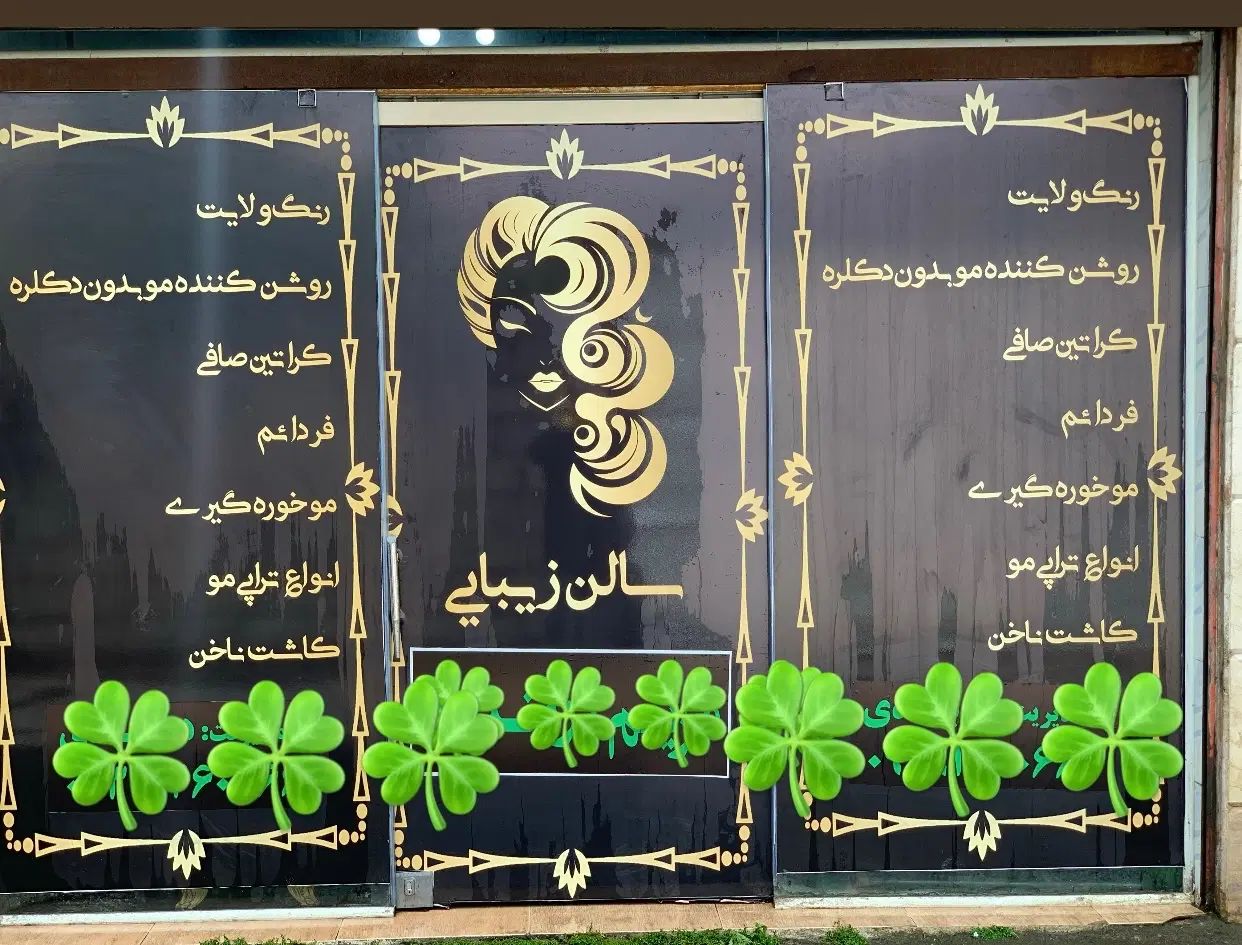 رنگ و لایت
روشن کننده مو بدون دکلره
کراتین صافی
فر دائم
موخوره گیری
انواع تراپی مو
کاشت ناخن
سالن زیبایی
رنگ و لایت
روشن کننده مو بدون دکلره
کراتین صافی
فر دائم
موخوره گیری
انواع تراپی مو
کاشت ناخن